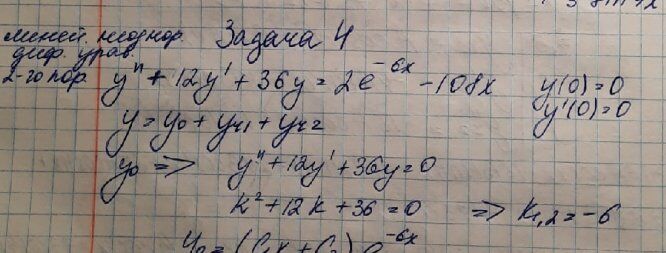 Задача 4
линей. неоднор.
диф. урав.
2-го пор.
y" + 12y' + 36y = 2e^{-6x} - 108x   y(0) = 0
y'(0) = 0
y = y₀ + yч₁ + yч₂
y₀ => y" + 12y' + 36y = 0
k² + 12k + 36 = 0 => k₁,₂ = -6
y₀ = (C₁x + C₂) e^{-6x}